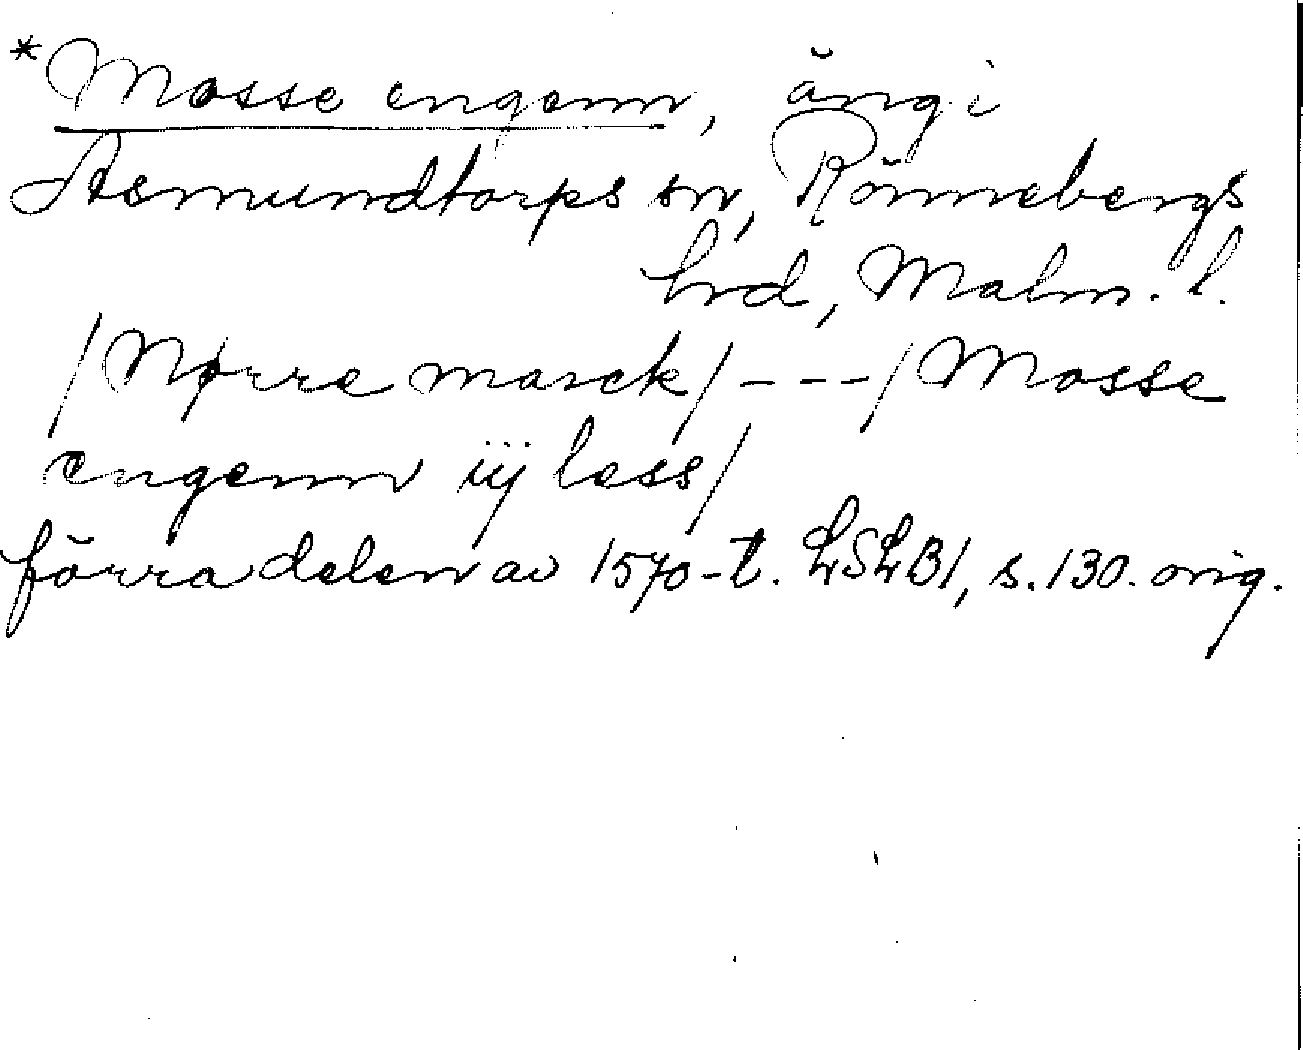 *Mosse engenn, äng i
Asmundtorps sn, Rönnebergs
hrd, Malm. l.
/Nørre marck/ --- / Mosse
engenn iij less/
förra delen av 1570-t. LSLB1, s. 130. orig.